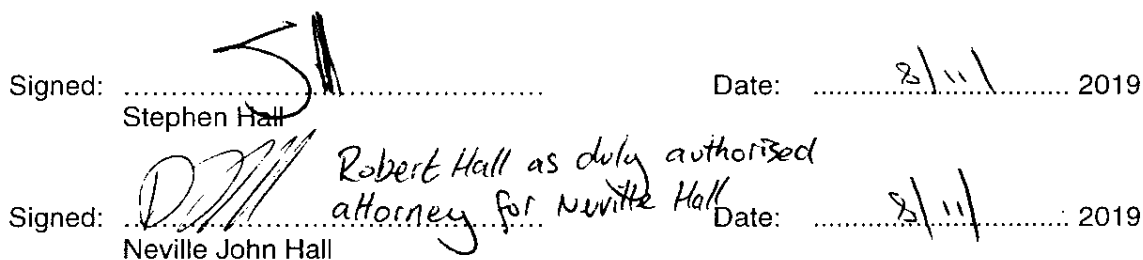 Signed: ........................................ Date: ..8/11/.. 2019
Stephen Hall
Robert Hall as duly authorised
attorney for Neville Hall
Signed: ........................................ Date: ..8/11/.. 2019
Neville John Hall